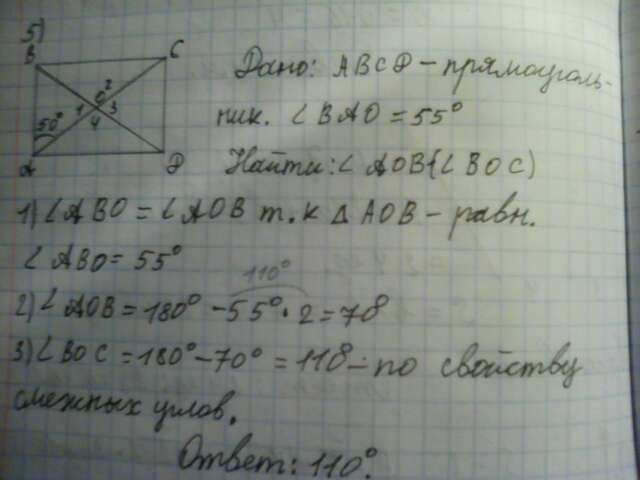 5)
B C
Дано: ABCD – прямоуголь-
ник. ∠BAO = 55°
50° 1 O 2 3 4
A D
Найти: ∠AOB(∠BOC)
1) ∠ABO = ∠AOB т.к ΔAOB – равн.
∠ABO = 55°
110°
2) ∠AOB = 180° – 55° · 2 = 70°
3) ∠BOC = 180° – 70° = 110° – по свойству
смежных углов.
Ответ: 110°.